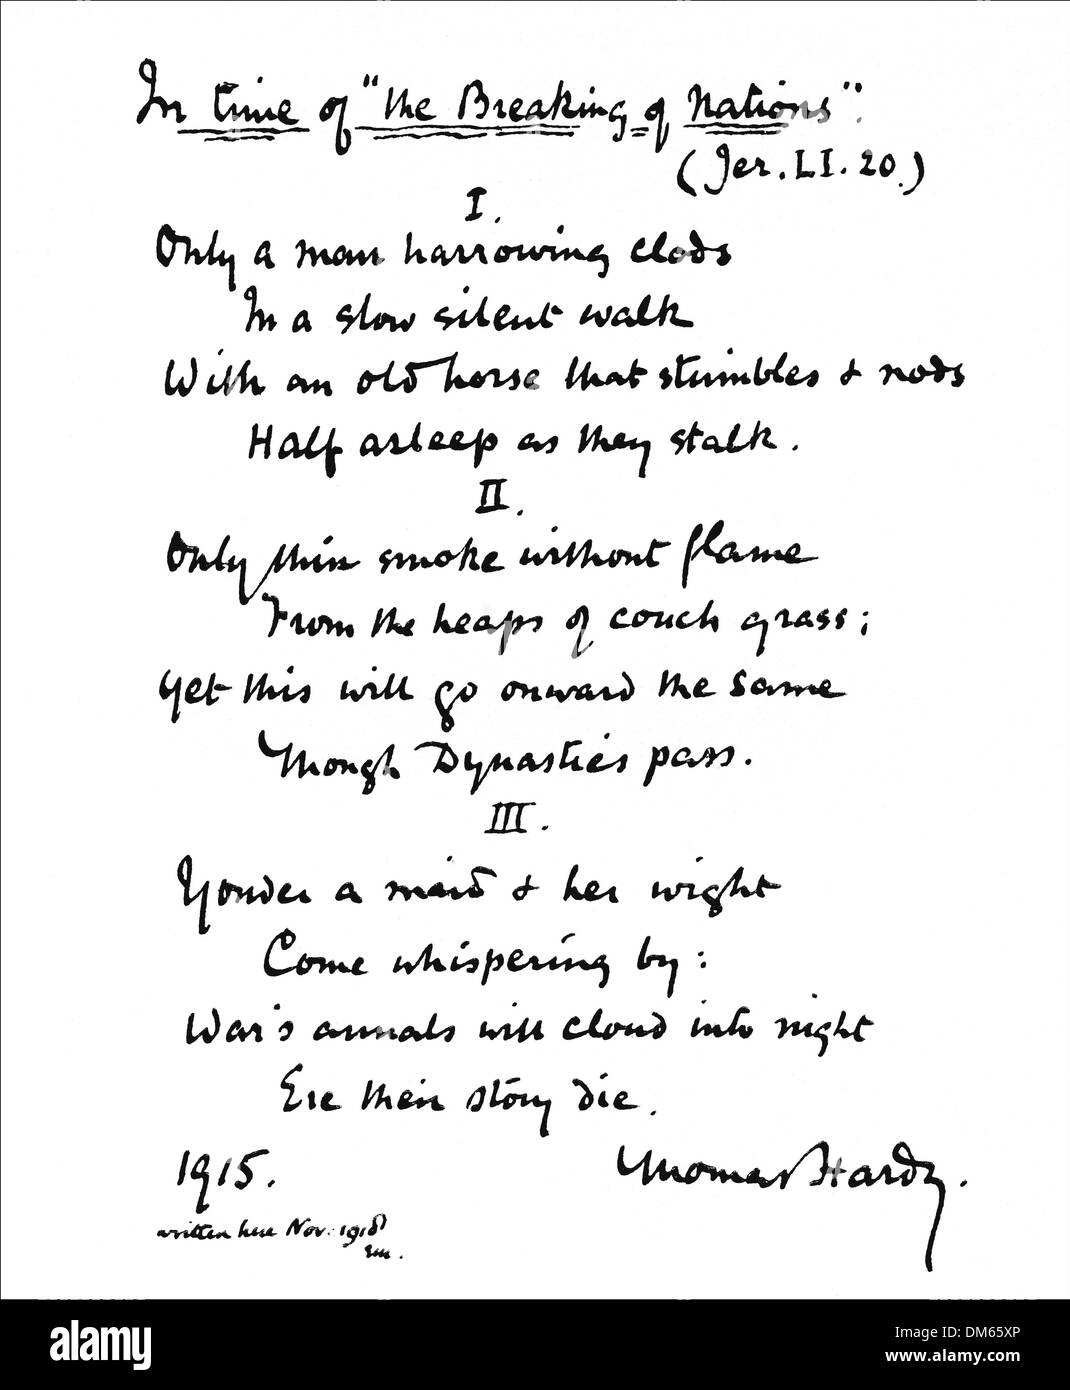 In time of "the Breaking of Nations".
(Jer. LI. 20.)
I.
Only a man harrowing clods
In a slow silent walk
With an old horse that stumbles & nods
Half asleep as they stalk.
II.
Only thin smoke without flame
From the heaps of couch grass;
Yet this will go onward the same
Though Dynasties pass.
III.
Yonder a maid & her wight
Come whispering by:
War's annals will cloud into night
Ere their story die.
1915.
Thomas Hardy.
written here Nov. 1918
alamy
alamy
Image ID: DM65XP
www.alamy.com